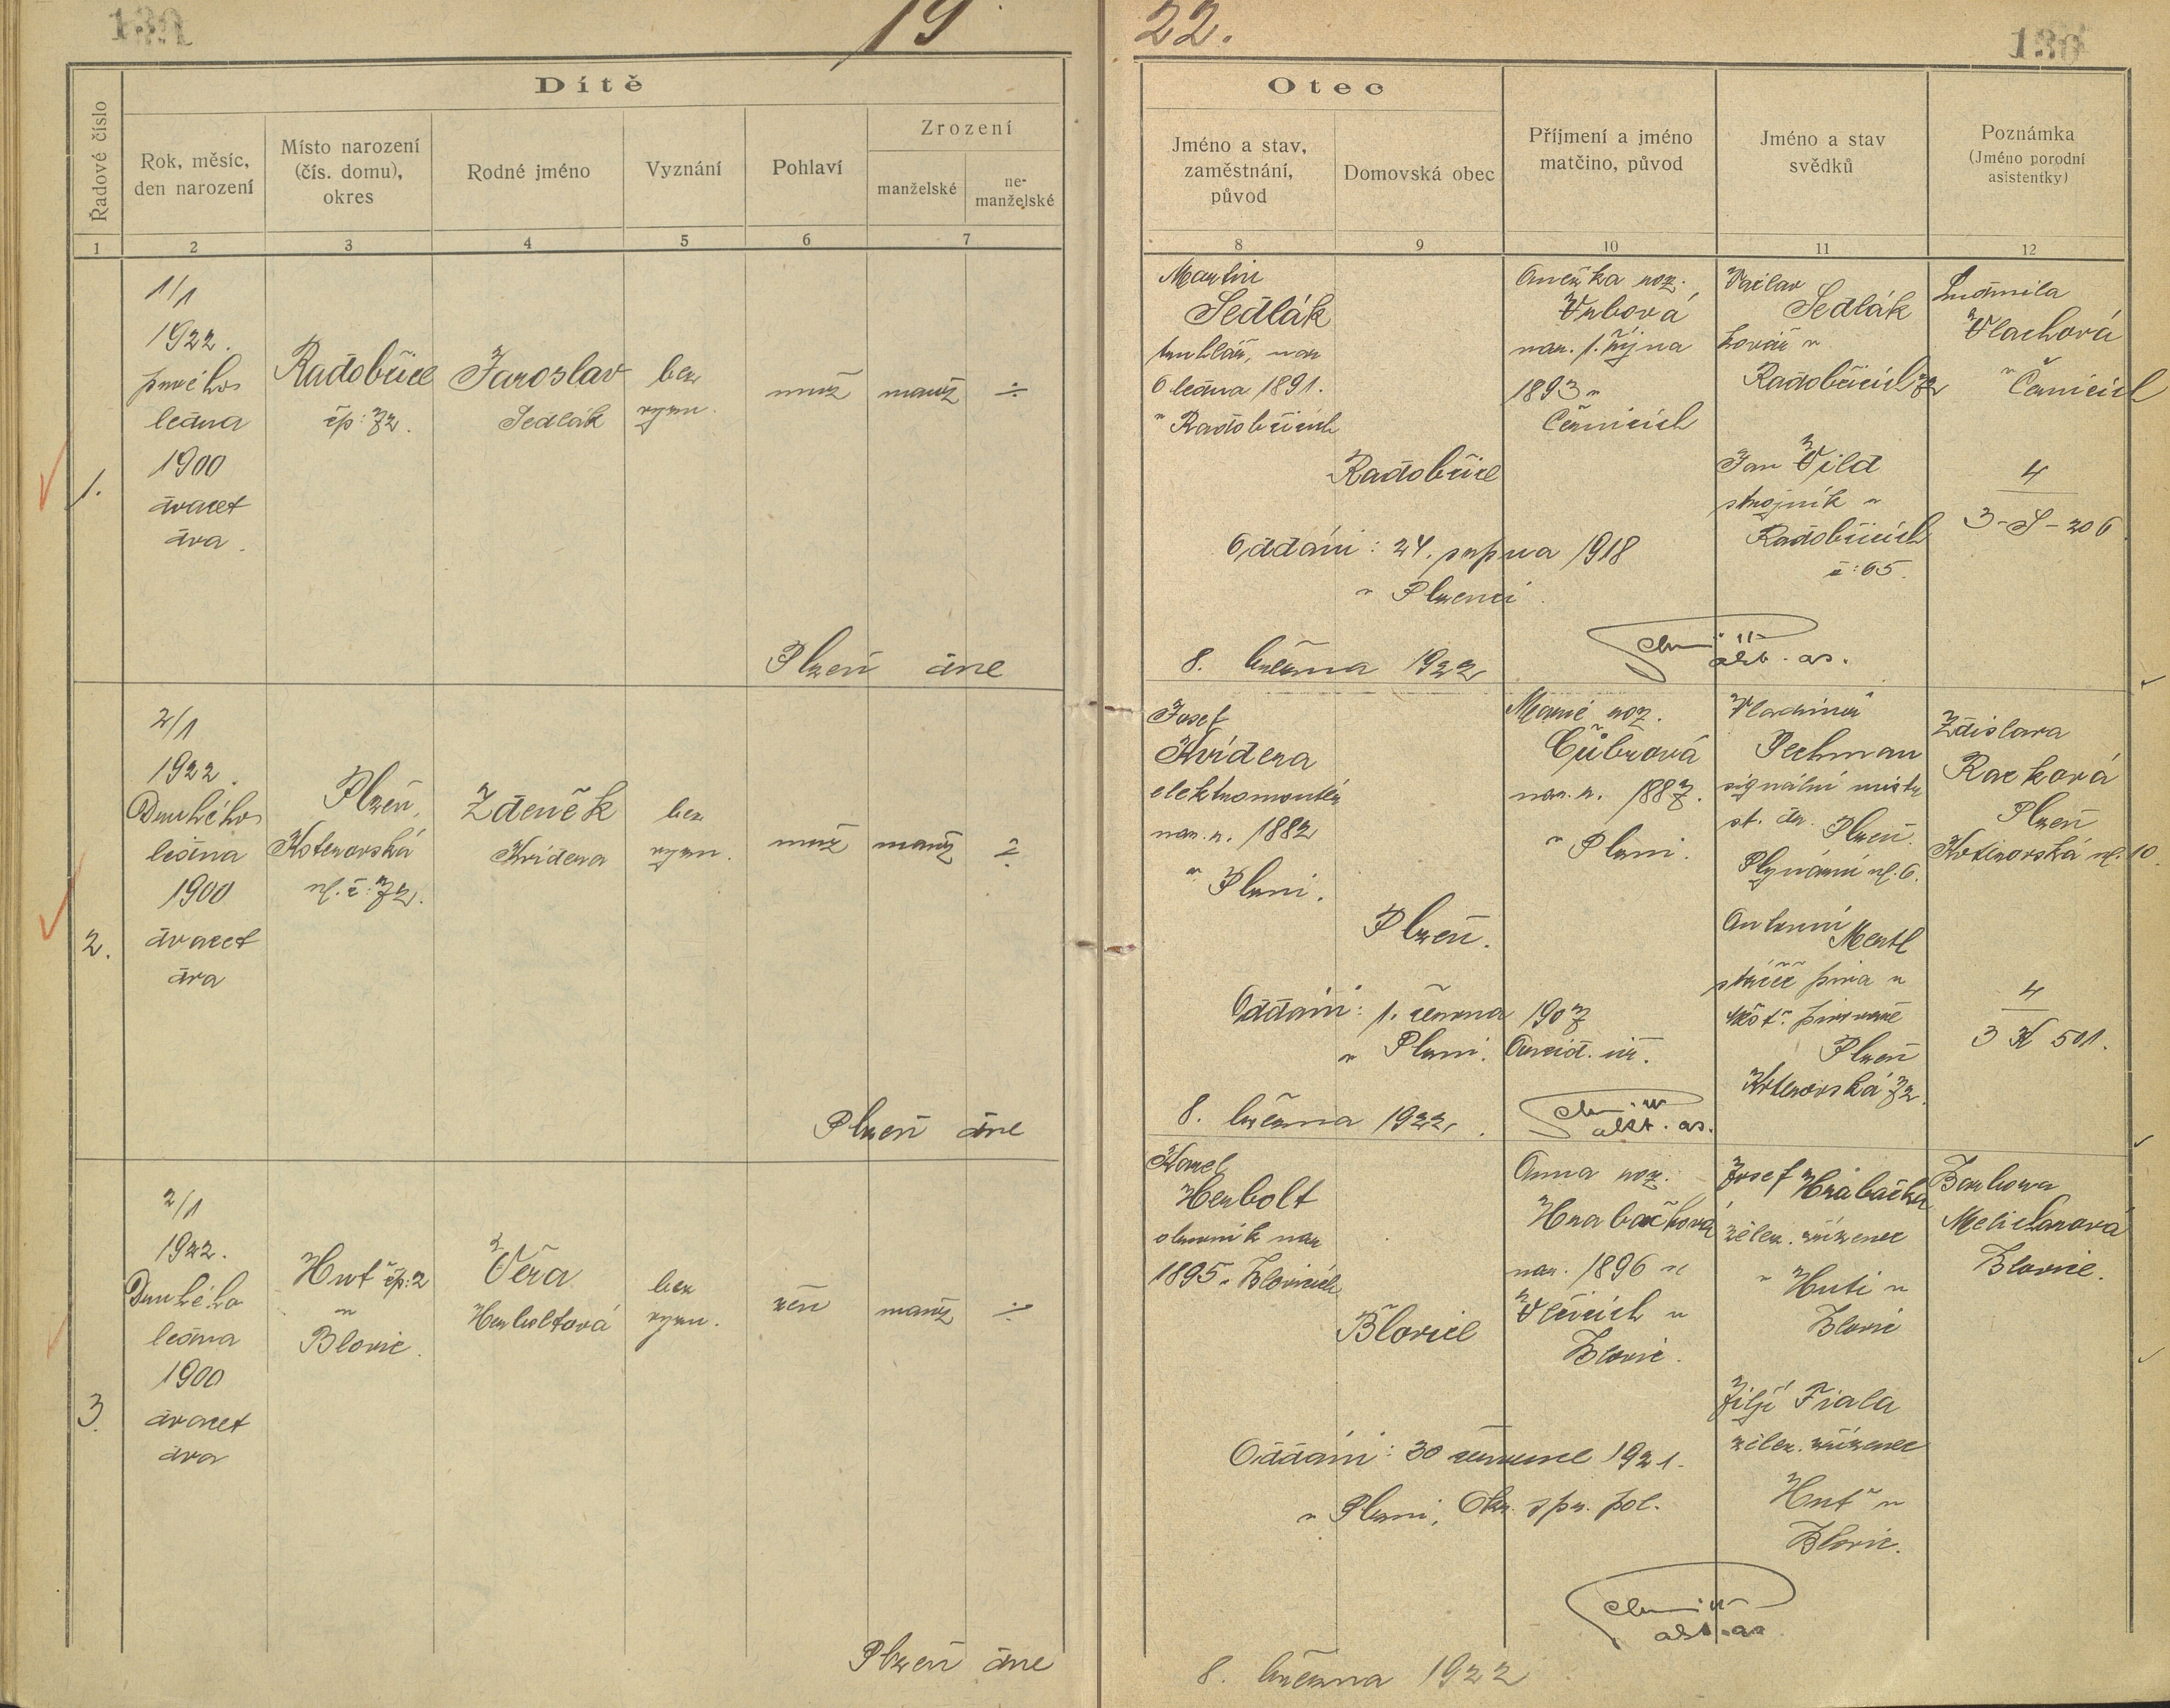 19
22.
130
Dítě
Řadové číslo
Rok, měsíc,
den narození
Místo narození
(čís. domu),
okres
Rodné jméno
Vyznání
Pohlaví
Zrození
manželské
ne-
manželské
1
2
3
4
5
6
7
Otec
Jméno a stav,
zaměstnání,
původ
Domovská obec
Příjmení a jméno
matčino, původ
Jméno a stav
svědků
Poznámka
(Jméno porodní
asistentky)
8
9
10
11
12
1.
1/1
1922.
prvého
ledna
1900
dvacet
dva.
Radobřice
čp: 72.
Jaroslav
Sedlák
bez
vyzn.
muž
manž
÷
Martin
Sedlák
truhlář, nar
6 ledna 1891.
v Radobřicích
Radobřice
Anežka roz.
Vrbová
nar. 1. října
1893 v
Černicích
Václav
Sedlák
kovář v
Radobřicích 72
Jan Vild
strojník v
Radobřicích
č: 65.
Ludmila
Vlachová
v Černicích
4
3-S-206
Oddáni: 24. srpna 1918
v Plzenci.
Plzeň dne
8. března 1922
2.
2/1
1922.
Druhého
ledna
1900
dvacet
dva
Plzeň,
Koterovská
ul. č: 72.
Zdeněk
Kvídera
bez
vyzn.
muž
manž
÷
Josef
Kvídera
elektromontér
nar. r. 1882
v Plzni.
Plzeň.
Marie roz.
nar. r. 1887.
v Plzni.
Vladimír
Pechman
signální mistr
st. dr. Plzeň.
Plynární ul. 6.
Antonín
Mertl
stáčeč piva v
měšť. pivovaře
Plzeň
Koterovská 72.
Zdislava
Racková
Plzeň
Koterovská ul. 10.
4
3 K 501.
Oddáni: 1. června 1907
v Plzni. Arcid. úř.
Plzeň dne
8. března 1922.
3.
2/1
1922.
Druhého
ledna
1900
dvacet
dva
Huť čp: 2
u
Blovic.
Věra
Herboltová
bez
vyzn.
žen
manž
÷
Karel
Herbolt
olovník nar
1895 v Blovicích
Blovice
Anna roz.
Hrabačková
nar. 1896 v
Vlčicích u
Blovic.
Josef Hrabačka
želez. zřízenec
v Huti u
Blovic
Jiljí Fiala
želez. zřízenec
Huť u
Blovic.
Barbora
Melicharová
Blovice.
Oddáni: 30 července 1921.
v Plzni, Okr. spr. pol.
Plzeň dne
8. března 1922